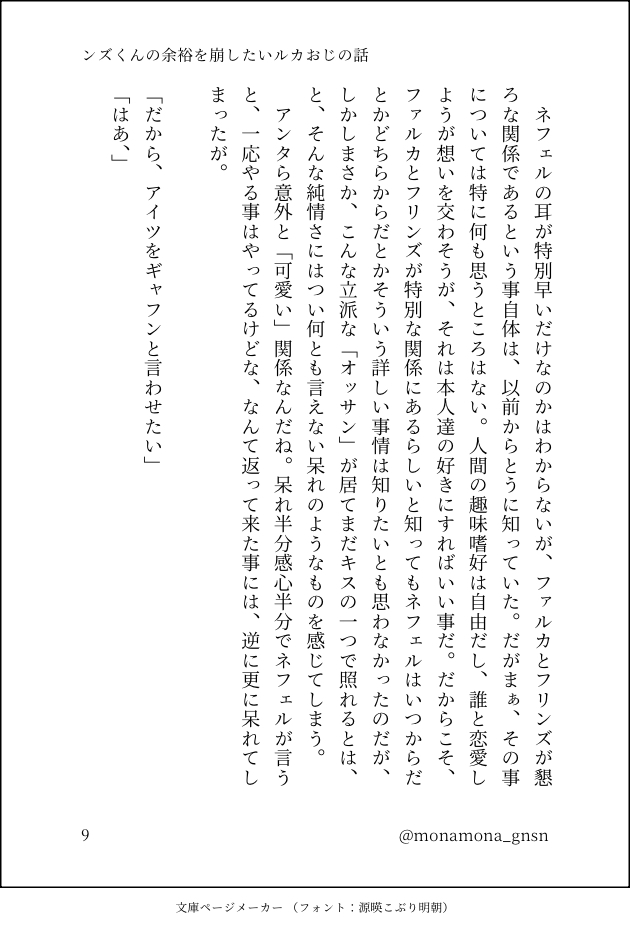 ンズくんの余裕を崩したいルカおじの話
ネフェルの耳が特別早いだけなのかはわからないが、ファルカとフリンズが懇
ろな関係であるという事自体は、以前からとうに知っていた。だがまぁ、その事
については特に何も思うところはない。人間の趣味嗜好は自由だし、誰と恋愛し
ようが想いを交わそうが、それは本人達の好きにすればいい事だ。だからこそ、
ファルカとフリンズが特別な関係にあるらしいと知ってもネフェルはいつからだ
とかどちらからだとかそういう詳しい事情は知りたいとも思わなかったのだが、
しかしまさか、こんな立派な「オッサン」が居てまだキスの一つで照れるとは、
と、そんな純情さにはつい何とも言えない呆れのようなものを感じてしまう。
アンタら意外と「可愛い」関係なんだね。呆れ半分感心半分でネフェルが言う
と、一応やる事はやってるけどな、なんて返って来た事には、逆に更に呆れてし
まったが。
「だから、アイツをギャフンと言わせたい」
「はあ、」
9
@monamona_gnsn
文庫ページメーカー（フォント：源暎こぶり明朝）